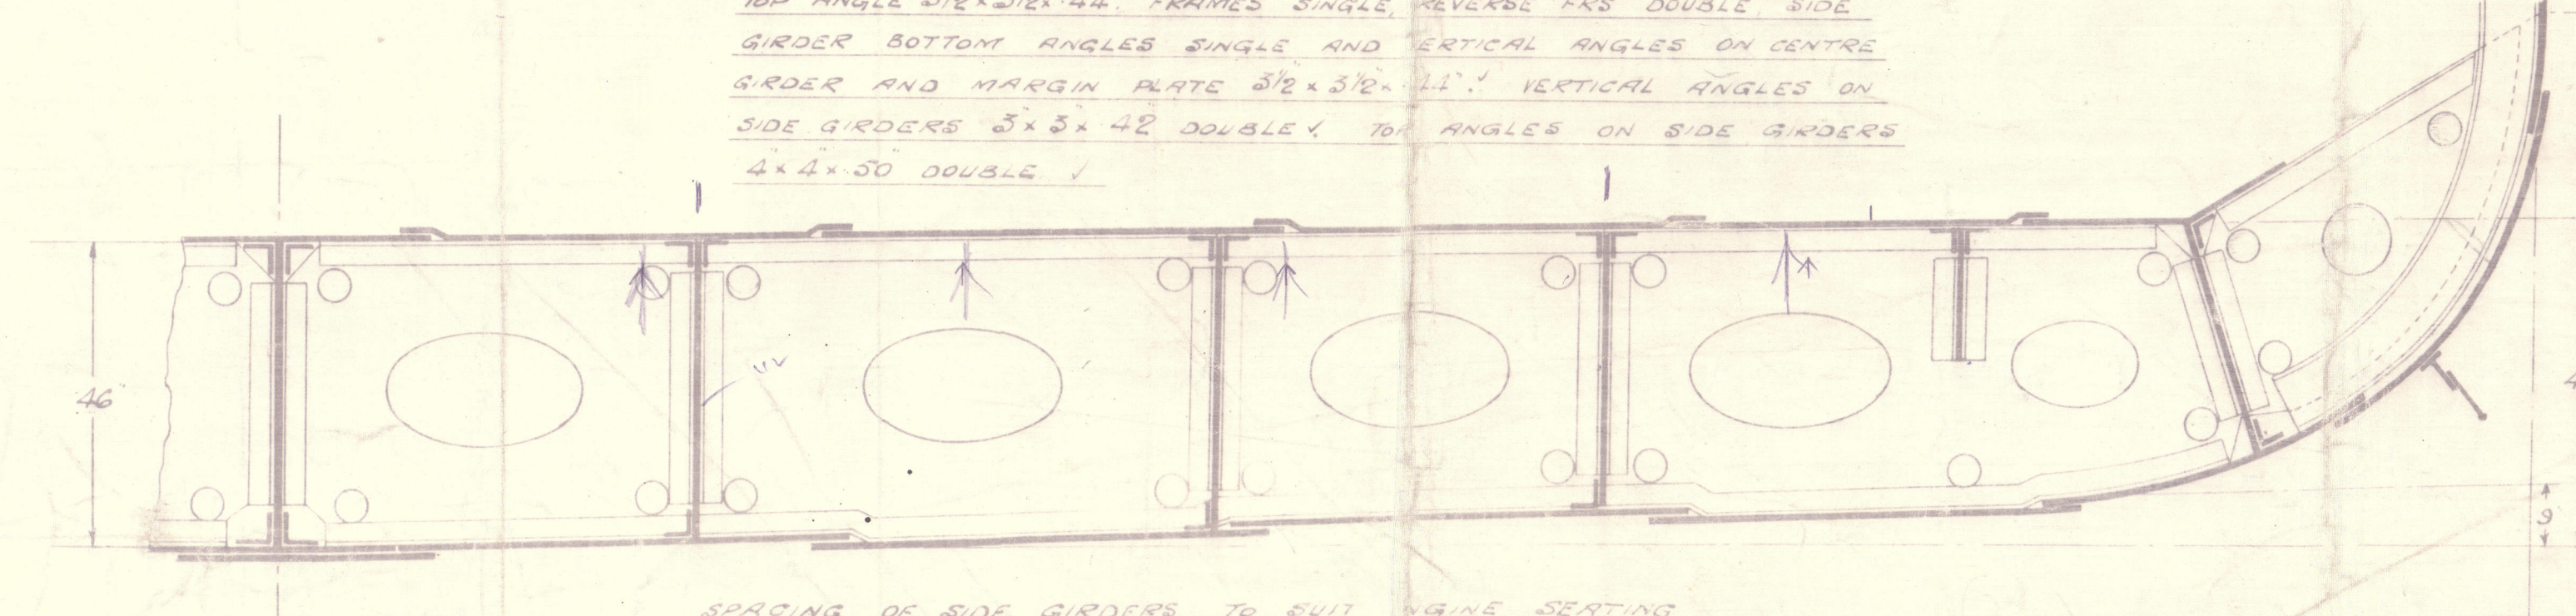 TOP ANGLE 3½"×3½"×·44". FRAMES SINGLE, REVERSE FRS DOUBLE, SIDE
GIRDER BOTTOM ANGLES SINGLE AND VERTICAL ANGLES ON CENTRE
GIRDER AND MARGIN PLATE 3½"×3½"×·44". ✓ VERTICAL ANGLES ON
SIDE GIRDERS 3"×3"×·42" DOUBLE ✓. TOP ANGLES ON SIDE GIRDERS
4"×4"×·50" DOUBLE ✓
46"
9"
SPACING OF SIDE GIRDERS TO SUIT ENGINE SEATING